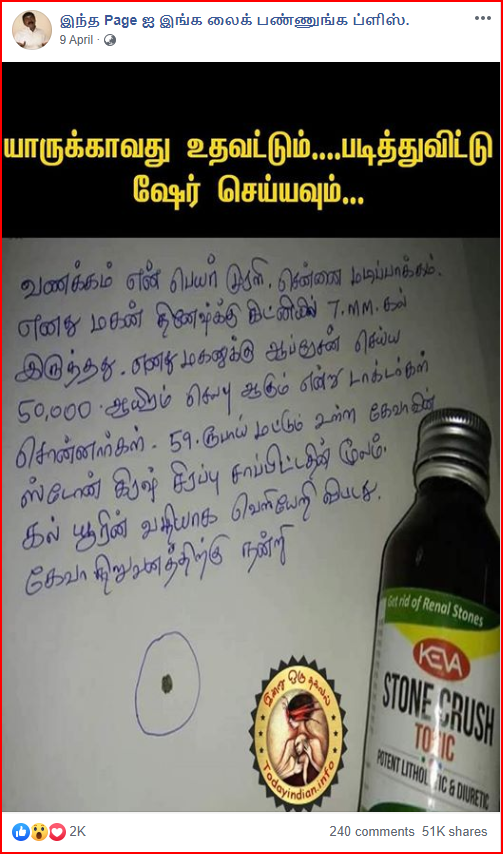 இந்த Page ஐ இங்க லைக் பண்ணுங்க ப்ளிஸ்.
9 April
யாருக்காவது உதவட்டும்....படித்துவிட்டு
ஷேர் செய்யவும்...
வணக்கம் என் பெயர் முரளி, சென்னை மடிப்பாக்கம்.
எனது மகன் தினேஷ்க்கு கிட்னியில் 7.MM. கல்
இருந்தது. எனது மகனுக்கு ஆப்ரேசன் செய்ய
50,000 ஆயிரம் செலவு ஆகும் என்று டாக்டர்கள்
சொன்னார்கள் - 59. ரூபாய் மட்டும் உள்ள கேவாவின்
ஸ்டோன் கிரஷ் சிரப்பு சாப்பிட்டதின் மூலம்.
கல் யூரின் வழியாக வெளியேறி விட்டது.
கேவா நிறுவனத்திற்கு நன்றி
Get rid of Renal Stones
KEVA
STONE CRUSH
TONIC
POTENT LITHOLYTIC & DIURETIC
Todayindian.info
2K
240 comments 51K shares